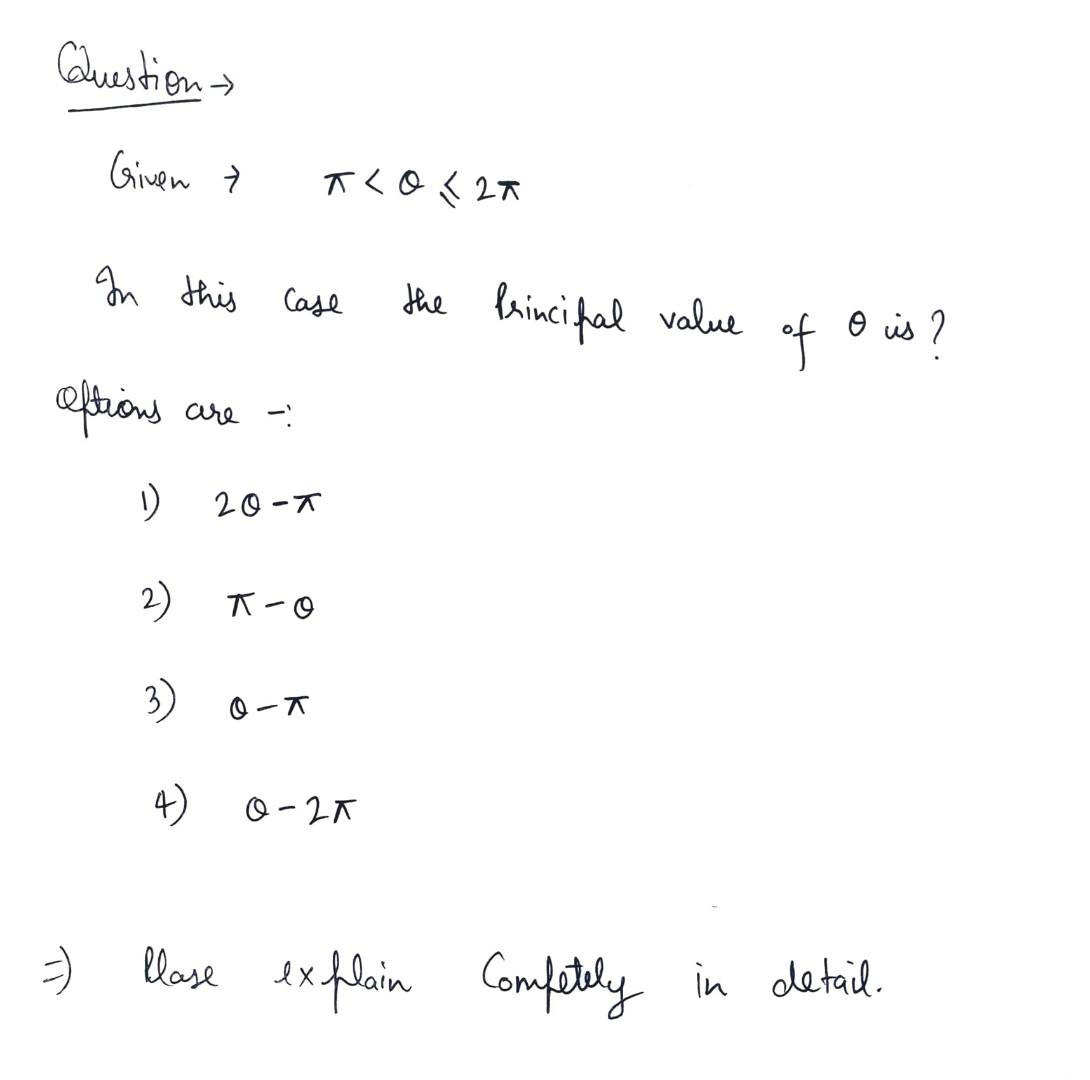 Question →
Given → π < θ ⩽ 2π
In this case the Principal value of θ is ?
options are -:
1) 2θ - π
2) π - θ
3) θ - π
4) θ - 2π
⇒) Plase explain Competely in detail.